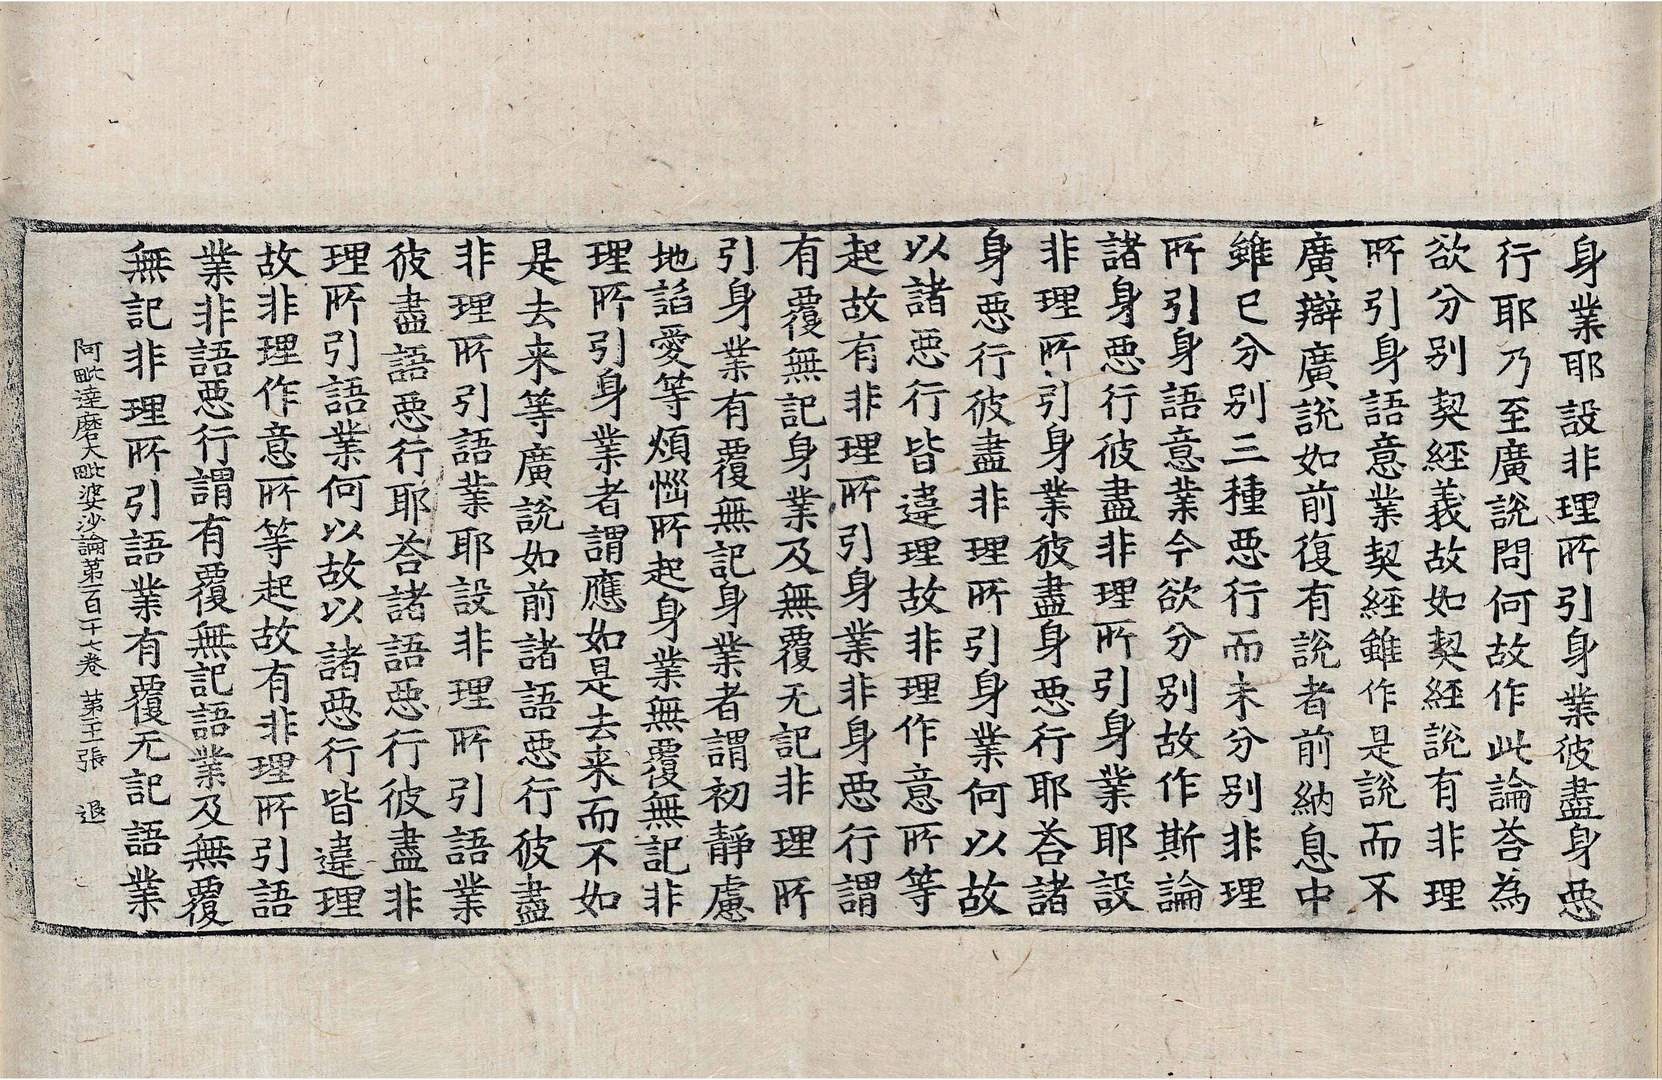 身業耶設非理所引身業彼盡身惡
行耶乃至廣說問何故作此論荅為
欲分別契經義故如契經說有非理
所引身語意業契經雖作是說而不
廣辯廣說如前復有說者前納息中
雖已分別三種惡行而未分別非理
所引身語意業今欲分別故作斯論
諸身惡行彼盡非理所引身業耶設
非理所引身業彼盡身惡行耶荅諸
身惡行彼盡非理所引身業何以故
以諸惡行皆違理故非理作意所等
起故有非理所引身業非身惡行謂
有覆無記身業及無覆无記非理所
引身業有覆無記身業者謂初靜慮
地諂愛等煩惱所起身業無覆無記非
理所引身業者謂應如是去來而不如
是去來等廣說如前諸語惡行彼盡
非理所引語業耶設非理所引語業
彼盡語惡行耶荅諸語惡行彼盡非
理所引語業何以故以諸惡行皆違理
故非理作意所等起故有非理所引語
業非語惡行謂有覆無記語業及無覆
無記非理所引語業有覆无記語業
阿毗達磨大毗婆沙論第一百一十七卷 第二十張 退